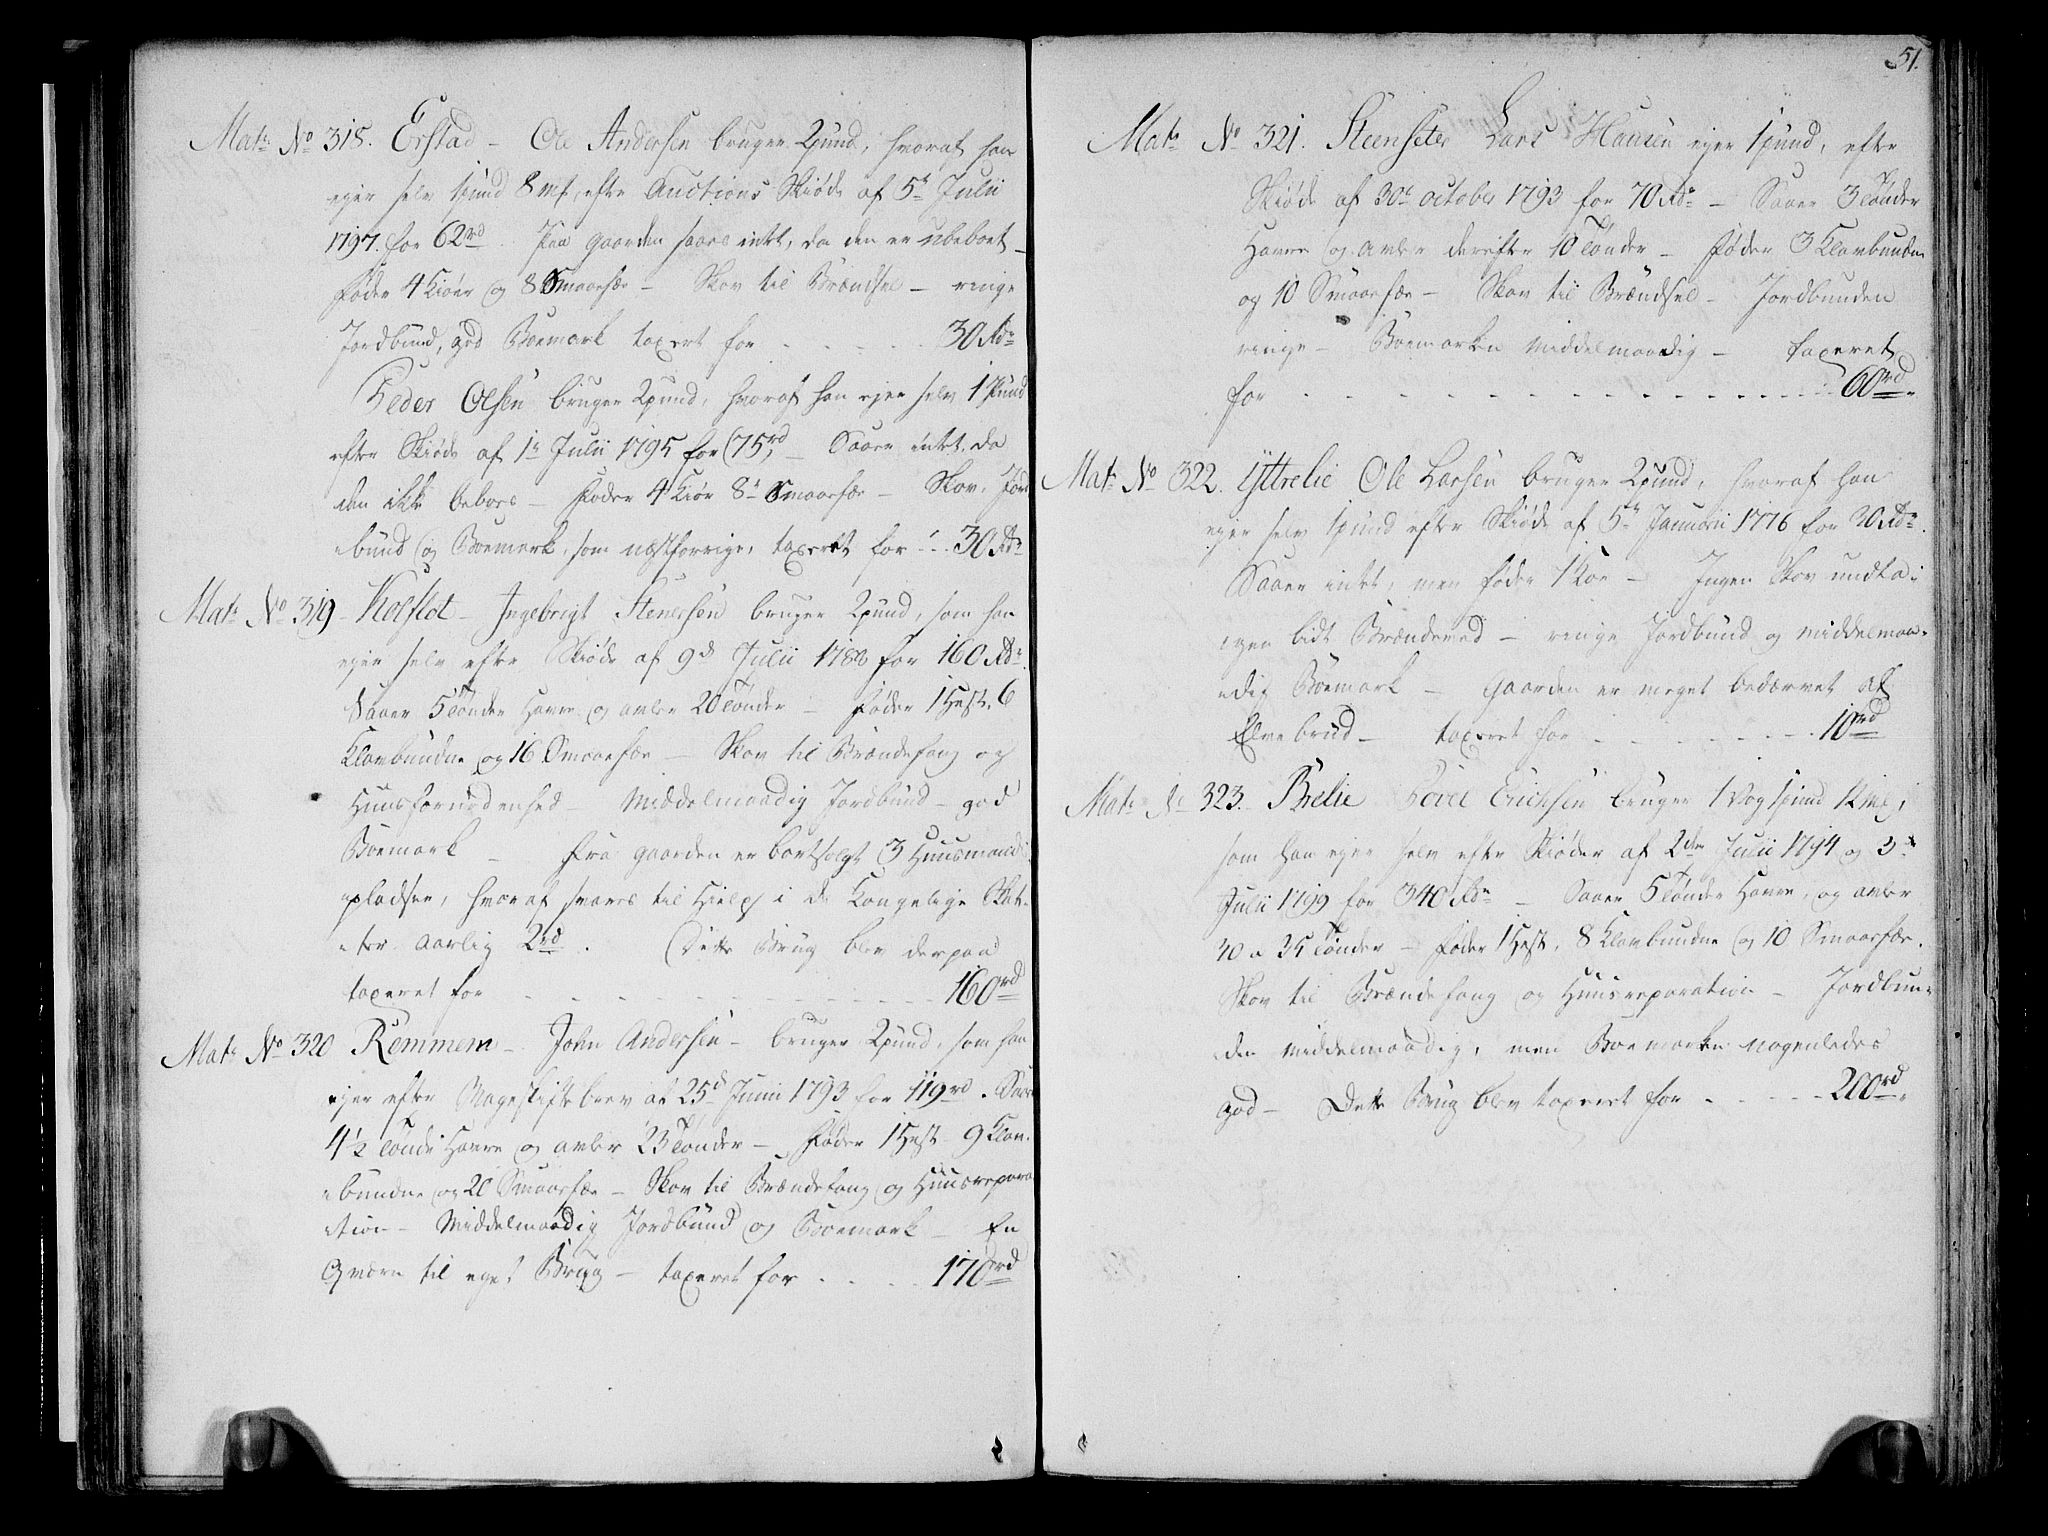 Matr No 318. Erstad – Ole Andersen bruger 2pund, hvoraf han
ejer selv 1pund 8mk, efter Auctions Skiøde af 5t Julii
1797. for 62rd. Paa Gaarden saaes intet, da den er ubeboet –
føder 4 Kiøer og 8 Smaafæ – Skov til Brændsel – ringe
Jordbund, god Bøemark taxert for - - - - - 30 Rdr
Peder Olsen bruger 2pund, hvoraf han ejer selv 1 Pund
efter Skiøde af 1t Julii 1795 for 75rd – Saaer intet, da
den ikke beboes – føder 4 Kiør 8 Smaafæ – Skov, Jord
bund og Bøemark, som næstforrige, taxeret for - - 30 Rdr
Matr No 319 – Kolflot – Ingebrigt Stenersen bruger 2pund, som han
ejer selv efter Skiøde af 9d Julii 1788 for 160 Rdr.
Saaer 5 Tønder Havre og avler 20 Tønder – føder 1 Hest, 6
Klavbundne og 16 Smaafæ – Skov til Brændefang og
Huusfornødenhed – Middelmaadig Jordbund – god
Bøemark – fra Gaarden er bortsolgt 3 Huusmands
pladser, hvoraf svares til Hielp i de Kongelige Skat-
ter aarlig 2rd. Dette Brug blev derpaa
taxeret for - - - - - - - - - - 160rd
Matr No 320 Remmem – John Andersen – bruger 2pund, som han
ejer efter Magestiftebrev af 25d Junii 1793 for 119rd. Saaer
4½ Tønde Havre og avler 23 Tønder – føder 1 Hest 9 Klav-
bundne og 20 Smaafæ – Skov til Brændefang og Huusrepara
tion – Middelmaadig Jordbund og Bøemark – En
Qværn til eget Brug – taxeret for - - - - 170rd
51.
Matr No 321. Steenseter Lars Hansen ejer 1pund, efter
Skiøde af 30t October 1793 for 70 Rdr – Saaer 3 Tønder
Havre og avler derefter 10 Tønder – føder 3 Klavbundne
og 10 Smaafæ – Skov til Brændsel – Jordbunden
ringe – Bøemarken middelmaadig – taxeret
for - - - - - - - - - - - - - - 60rd.
Matr No 322. Yttrelie Ole Larsen bruger 2pund, hvoraf han
ejer selv 1pund efter Skiøde af 5t Januarii 1776 for 30 Rdr.
Saaer intet, men føder 1 Koe – Ingen Skov undta-
gen lidt Brændeved – ringe Jordbund og middelmaa-
dig Bøemark – Gaarden er meget bedærvet af
Elvebrud – taxeret for - - - - - - - 10rd
Matr No 323. Brelie Povel Erichsen bruger 1 Vog 1pund 12 mk,
som han ejer selv efter Skiøder af 2den Julii 1794 og 3t
Julii 1799 for 340 Rdr – Saaer 5 Tønder Havre, og avler
30 a 35 Tønder – føder 1 Hest, 8 Klavbundne og 10 Smaafæ.
Skov til Brændefang og Huusreparation – Jordbun-
den middelmaadig, men Bøemarken nogenledes
god – Dette Brug blev taxeret for - - - - - 200rd.